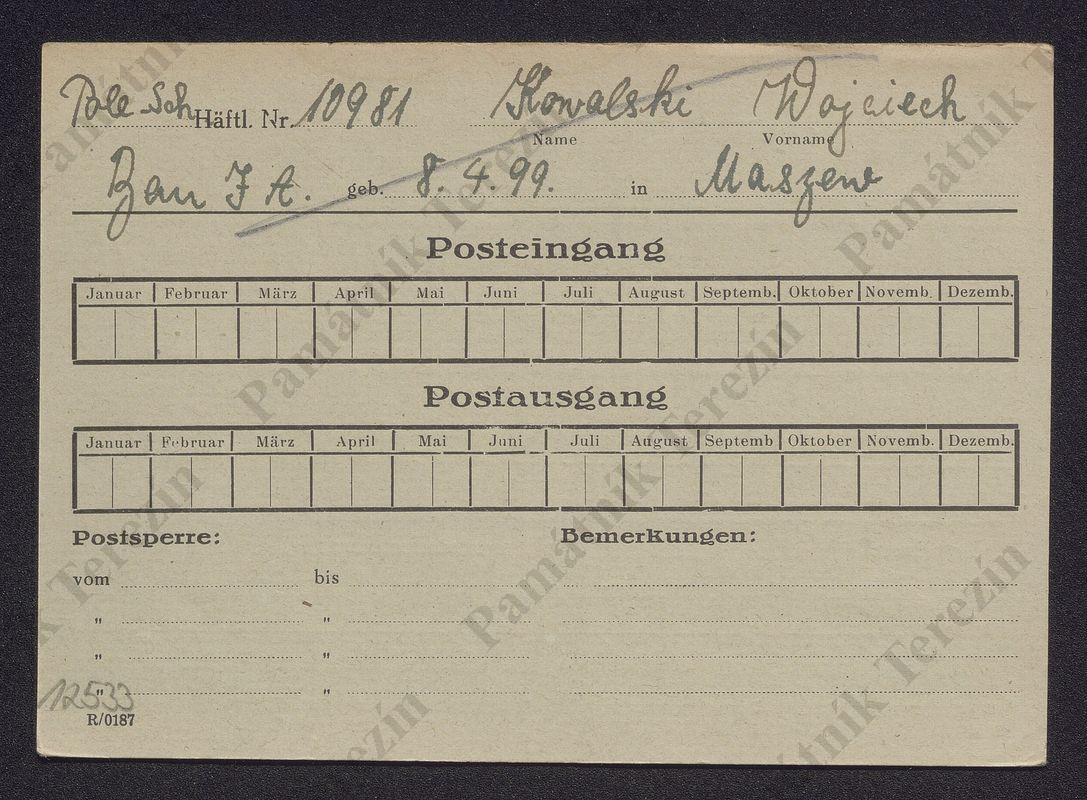 Pole Sch Häftl. Nr. 10981 Kowalski Wojciech
Name Vorname
Bau I A. geb. 8. 4. 99. in Maszew
Posteingang
Januar Februar März April Mai Juni Juli August Septemb. Oktober Novemb. Dezemb.
Postausgang
Januar Februar März April Mai Juni Juli August Septemb Oktober Novemb. Dezemb.
Postsperre: Bemerkungen:
vom bis
" "
" "
" "
12533
R/0187
Památník Terezín
Památník Terezín
Památník Terezín
Památník Terezín